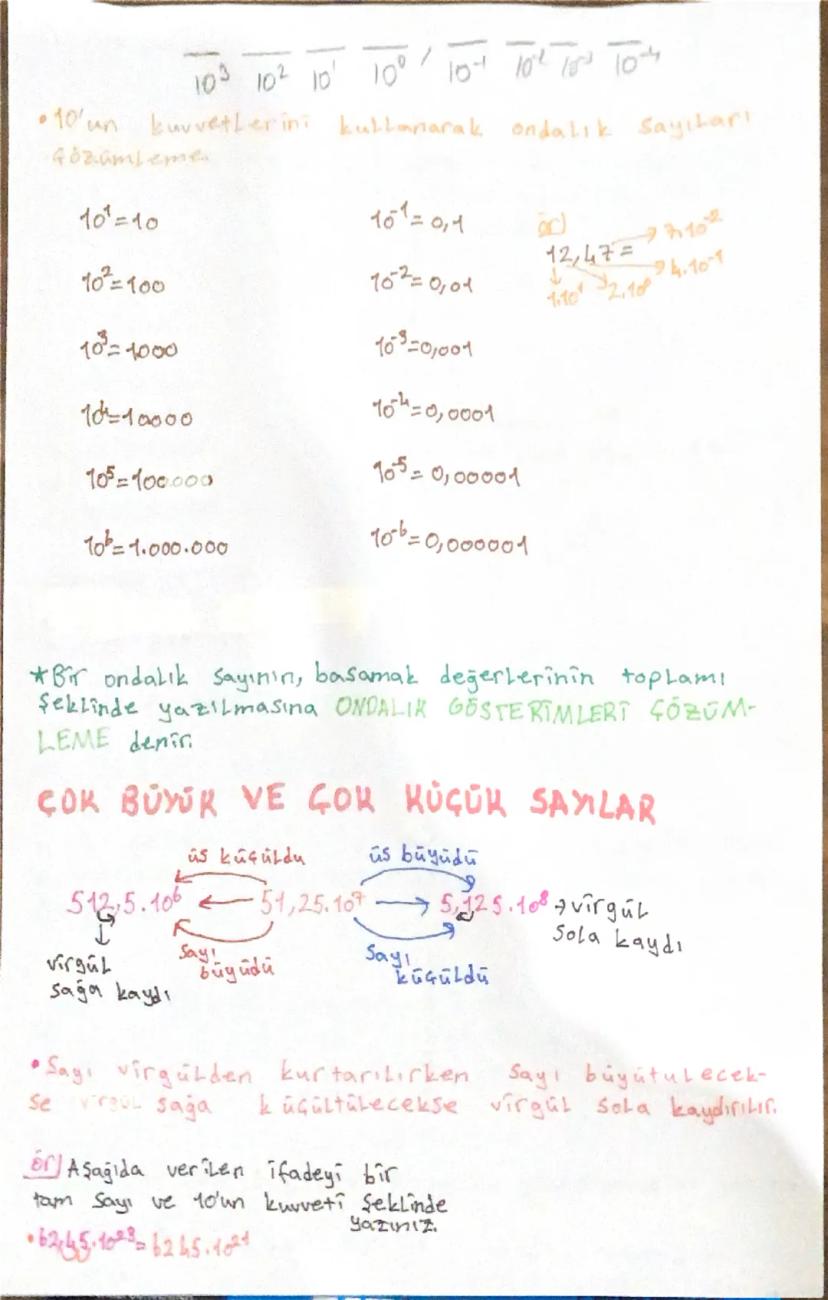 10³ 10² 10¹ 10⁰ , 10⁻¹ 10⁻² 10⁻³ 10⁻⁴
• 10'un kuvvetlerini kullanarak ondalık sayıları
çözümleme.
10¹=10 10⁻¹=0,1 ör)
10²=100 10⁻²=0,01 12,47= → 7.10⁻²
→ 4.10⁻¹
1.10¹ 2.10⁰
10³=1000 10⁻³=0,001
10⁴=10000 10⁻⁴=0,0001
10⁵=100.000 10⁻⁵=0,00001
10⁶=1.000.000 10⁻⁶=0,000001
*Bir ondalık sayının, basamak değerlerinin toplamı
şeklinde yazılmasına ONDALIK GÖSTERİMLERİ ÇÖZÜM-
LEME denir.
ÇOK BÜYÜK VE ÇOK KÜÇÜK SAYILAR
üs küçüldü üs büyüdü
512,5.10⁶ ← 51,25.10⁷ → 5,125.10⁸ → virgül
sola kaydı
virgül
sağa kaydı
sayı
büyüdü
sayı
küçüldü
• Sayı virgülden kurtarılırken sayı büyütülecek-
se virgül sağa küçültülecekse virgül sola kaydırılır.
ör) Aşağıda verilen ifadeyi bir
tam sayı ve 10'un kuvveti şeklinde
yazınız.
• 62,45.10²³=6245.10²¹